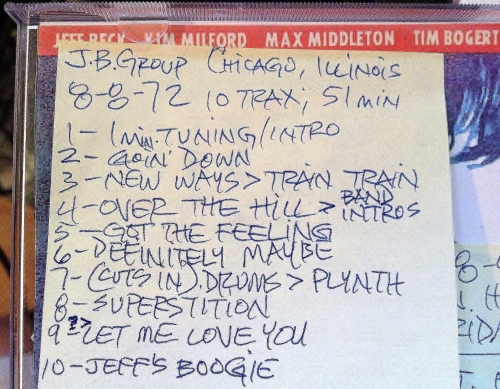 JEFF BECK KIM MILFORD MAX MIDDLETON TIM BOGERT
J.B. GROUP CHICAGO, ILLINOIS
8-8-72 10 TRAX; 51 MIN
1- 1 MIN. TUNING/INTRO
2- GOIN' DOWN
3- NEW WAYS > TRAIN TRAIN
4- OVER THE HILL > BAND INTROS
5- GOT THE FEELING
6- DEFINITELY MAYBE
7- (CUTS IN). DRUMS > PLYNTH
8- SUPERSTITION
9 ?> LET ME LOVE YOU
10- JEFF'S BOOGIE
8-